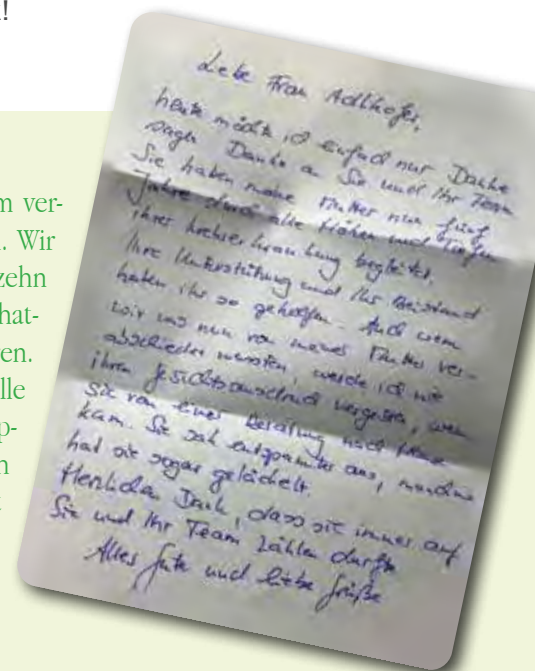 !
m ver-
. Wir
zehn
hat-
en.
lle
p-
n
Liebe Frau Adlhofer,
heute möchte ich einfach nur Danke
sagen. Danke an Sie und Ihr Team
Sie haben meine Mutter nun fünf
Jahre durch alle Höhen und Tiefen
ihrer Krebserkrankung begleitet.
Ihre Unterstützung und Ihr Beistand
haben ihr so geholfen. Auch wenn
wir uns nun von meiner Mutter ver-
abschieden mussten, werde ich nie
ihren Gesichtsausdruck vergessen, wenn
sie von einer Beratung nach Hause
kam. Sie sah entspannter aus, manchmal
hat sie sogar gelächelt.
Herzlichen Dank, dass sie immer auf
Sie und Ihr Team zählen durfte
Alles Gute und liebe Grüße